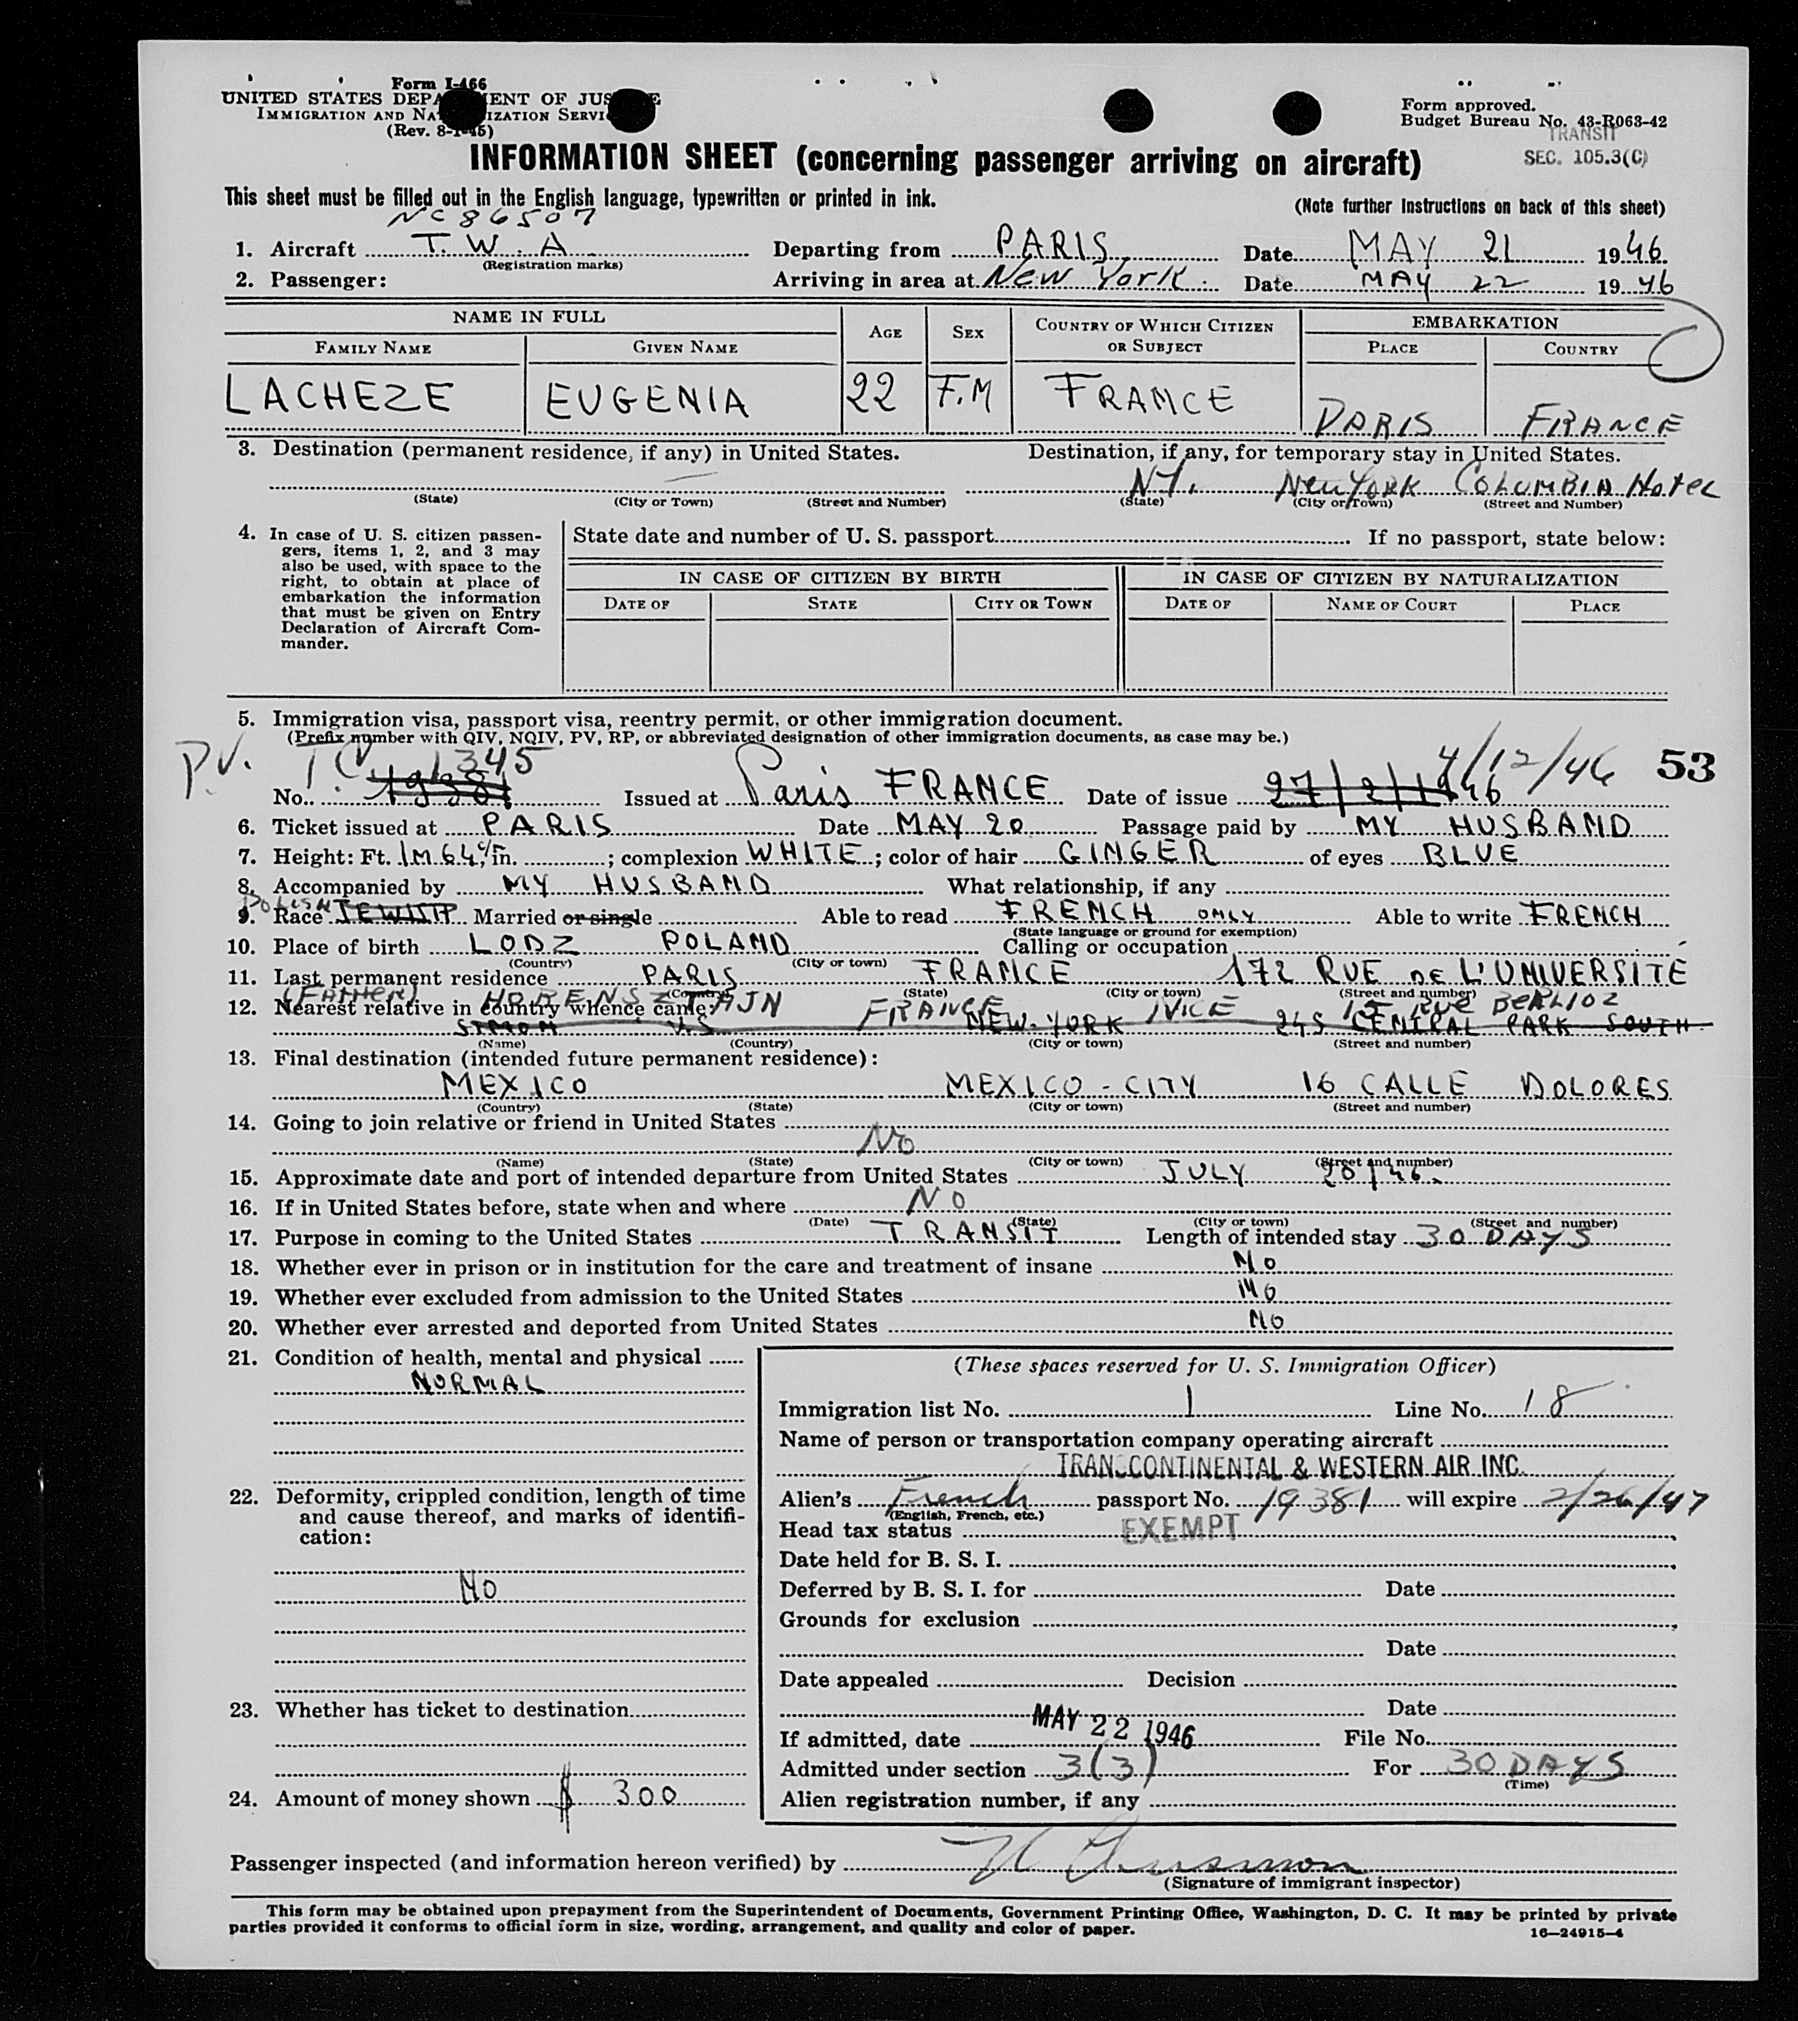 Form I-466
UNITED STATES DEPARTMENT OF JUSTICE
IMMIGRATION AND NATURALIZATION SERVICE
(Rev. 8-1-45)
Form approved.
Budget Bureau No. 43-R063-42
TRANSIT
SEC. 105.3(C)
INFORMATION SHEET (concerning passenger arriving on aircraft)
This sheet must be filled out in the English language, typewritten or printed in ink.
(Note further instructions on back of this sheet)
NC 86507
1. Aircraft T.W.A Departing from PARIS Date MAY 21 1946
(Registration marks)
2. Passenger: Arriving in area at New York Date MAY 22 1946
NAME IN FULL AGE SEX COUNTRY OF WHICH CITIZEN OR SUBJECT EMBARKATION
FAMILY NAME GIVEN NAME PLACE COUNTRY
LACHEZE EUGENIA 22 F.M FRANCE PARIS FRANCE
3. Destination (permanent residence, if any) in United States. Destination, if any, for temporary stay in United States.
— NY. New York Columbia Hotel
(State) (City or Town) (Street and Number) (State) (City or Town) (Street and Number)
4. In case of U. S. citizen passen-
gers, items 1, 2, and 3 may
also be used, with space to the
right, to obtain at place of
embarkation the information
that must be given on Entry
Declaration of Aircraft Com-
mander.
State date and number of U. S. passport If no passport, state below:
IN CASE OF CITIZEN BY BIRTH IN CASE OF CITIZEN BY NATURALIZATION
DATE OF STATE CITY OR TOWN DATE OF NAME OF COURT PLACE
5. Immigration visa, passport visa, reentry permit, or other immigration document.
(Prefix number with QIV, NQIV, PV, RP, or abbreviated designation of other immigration documents, as case may be.)
PV. TCV 1345 4/12/46 53
No. 19381 Issued at Paris FRANCE Date of issue 27/2/1946
6. Ticket issued at PARIS Date MAY 20 Passage paid by MY HUSBAND
7. Height: Ft. 1M64 c/in. ; complexion WHITE ; color of hair GINGER of eyes BLUE
8. Accompanied by MY HUSBAND What relationship, if any
POLISH
9. Race JEWISH Married or single Able to read FRENCH ONLY Able to write FRENCH
(State language or ground for exemption)
10. Place of birth LODZ POLAND Calling or occupation
(Country) (City or town)
11. Last permanent residence PARIS FRANCE 172 RUE DE L'UNIVERSITÉ
(Country) (State) (City or town) (Street and number)
(FATHER) HORENSZTAJN FRANCE NICE 15 Rue BERLIOZ
12. Nearest relative in country whence came:
SIMON U.S NEW-YORK 245 CENTRAL PARK SOUTH
(Name) (Country) (City or town) (Street and number)
13. Final destination (intended future permanent residence):
MEXICO MEXICO-CITY 16 CALLE DOLORES
(Country) (State) (City or town) (Street and number)
14. Going to join relative or friend in United States
No
(Name) (State) (City or town) (Street and number)
15. Approximate date and port of intended departure from United States JULY 20/46.
16. If in United States before, state when and where NO
(Date) (State) (City or town) (Street and number)
17. Purpose in coming to the United States TRANSIT Length of intended stay 30 DAYS
18. Whether ever in prison or in institution for the care and treatment of insane No
19. Whether ever excluded from admission to the United States No
20. Whether ever arrested and deported from United States No
21. Condition of health, mental and physical
NORMAL
22. Deformity, crippled condition, length of time
and cause thereof, and marks of identifi-
cation:
NO
23. Whether has ticket to destination
24. Amount of money shown $ 300
(These spaces reserved for U. S. Immigration Officer)
Immigration list No. 1 Line No. 18
Name of person or transportation company operating aircraft
TRANSCONTINENTAL & WESTERN AIR INC.
Alien's French passport No. 19381 will expire 2/26/47
(English, French, etc.)
Head tax status EXEMPT
Date held for B. S. I.
Deferred by B. S. I. for Date
Grounds for exclusion
Date
Date appealed Decision
Date
If admitted, date MAY 22 1946 File No.
Admitted under section 3(3) For 30 DAYS
(Time)
Alien registration number, if any
Passenger inspected (and information hereon verified) by
(Signature of immigrant inspector)
This form may be obtained upon prepayment from the Superintendent of Documents, Government Printing Office, Washington, D. C. It may be printed by private
parties provided it conforms to official form in size, wording, arrangement, and quality and color of paper.
16—24915-4